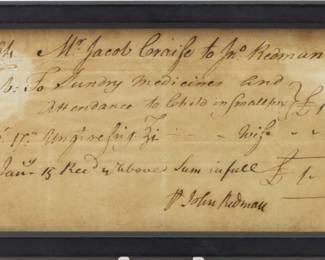 Mr. Jacob Craise to Jno. Redman
To Sundry Medicines and
Attendance to Child in Smallpox £
17 Wife
Jany. 15 Recd. ye above Sum in full £ 1
John Redman